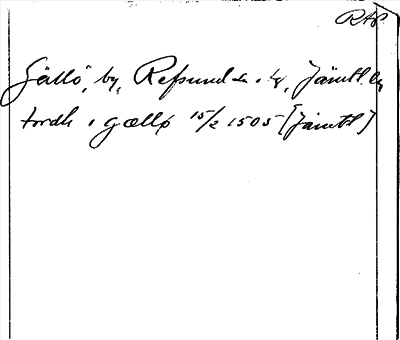 RAP
Gällö, by, Refsund sn. i kg, Jämtl. ln
tordh i gællø 15/2 1505 [Jämtl]